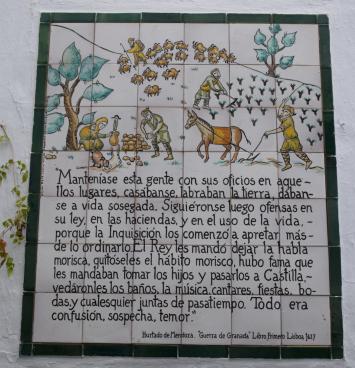 "Manteníase esta gente con sus oficios en aque-
llos lugares, casábanse, labraban la tierra, dában-
se a vida sosegada. Siguiéronse luego ofensas en
su ley, en las haciendas, y en el uso de la vida,-
porque la Inquisición los comenzo a apretar mas-
de lo ordinario. El Rey les mando dejar la habla
morisca, quitoseles el hábito morisco, hubo fama que
les mandaban tomar los hijos y pasarlos a Castilla,-
vedáronles los baños, la música, cantares, fiestas, bo-
das, y cualesquier juntas de pasatiempo. Todo era
confusión, sospecha, temor."
Hurtado de Mendoza. "Guerra de Granada" Libro Primero Lisboa, 1627